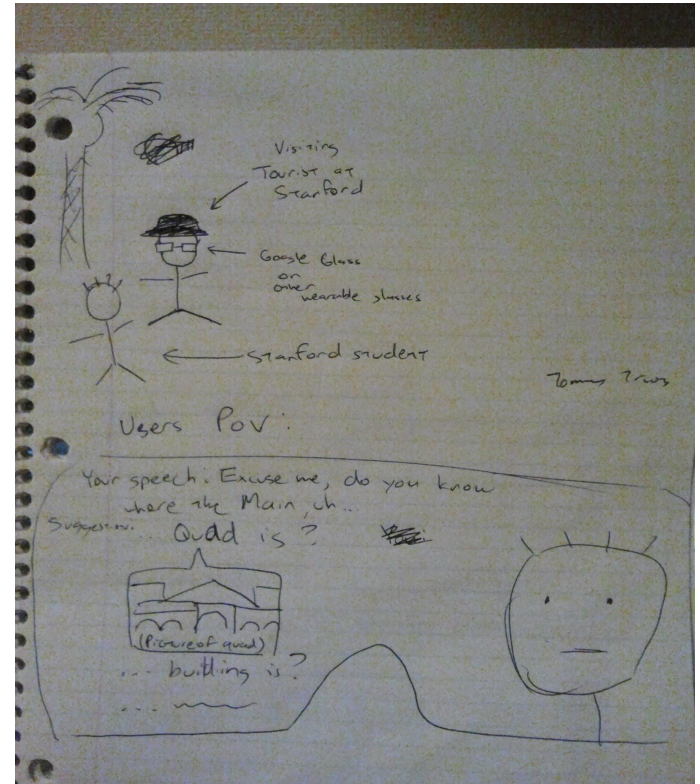 Visiting
Tourist at
Stanford
Google Glass
or
other
wearable glasses
Stanford student
Users Pov:
Your speech: Excuse me, do you know
where the Main, uh...
Suggestion: ... Quad is?
(Picture of quad)
... building is?
...